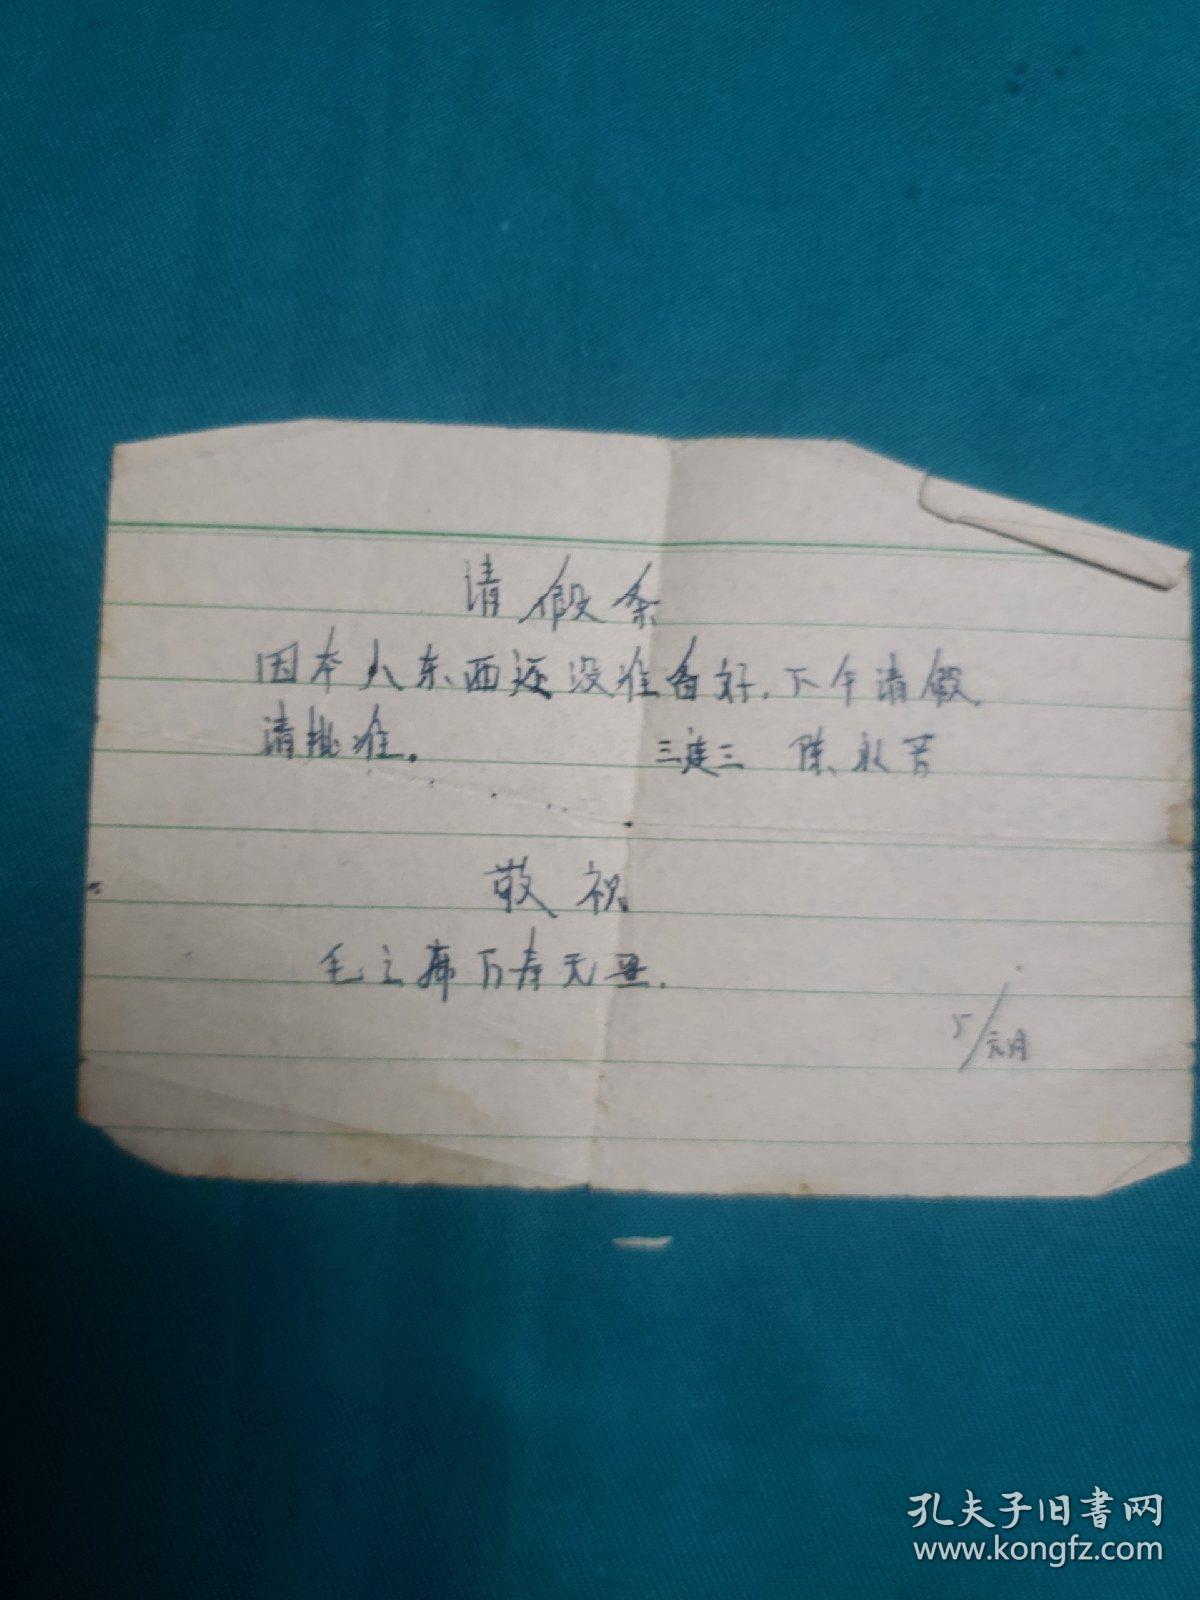 请假条
因本人东西还没准备好,下午请假
请批准。 三连三 陈永芳
敬祝
毛主席万寿无疆.
5/元月
孔夫子旧书网
www.kongfz.com